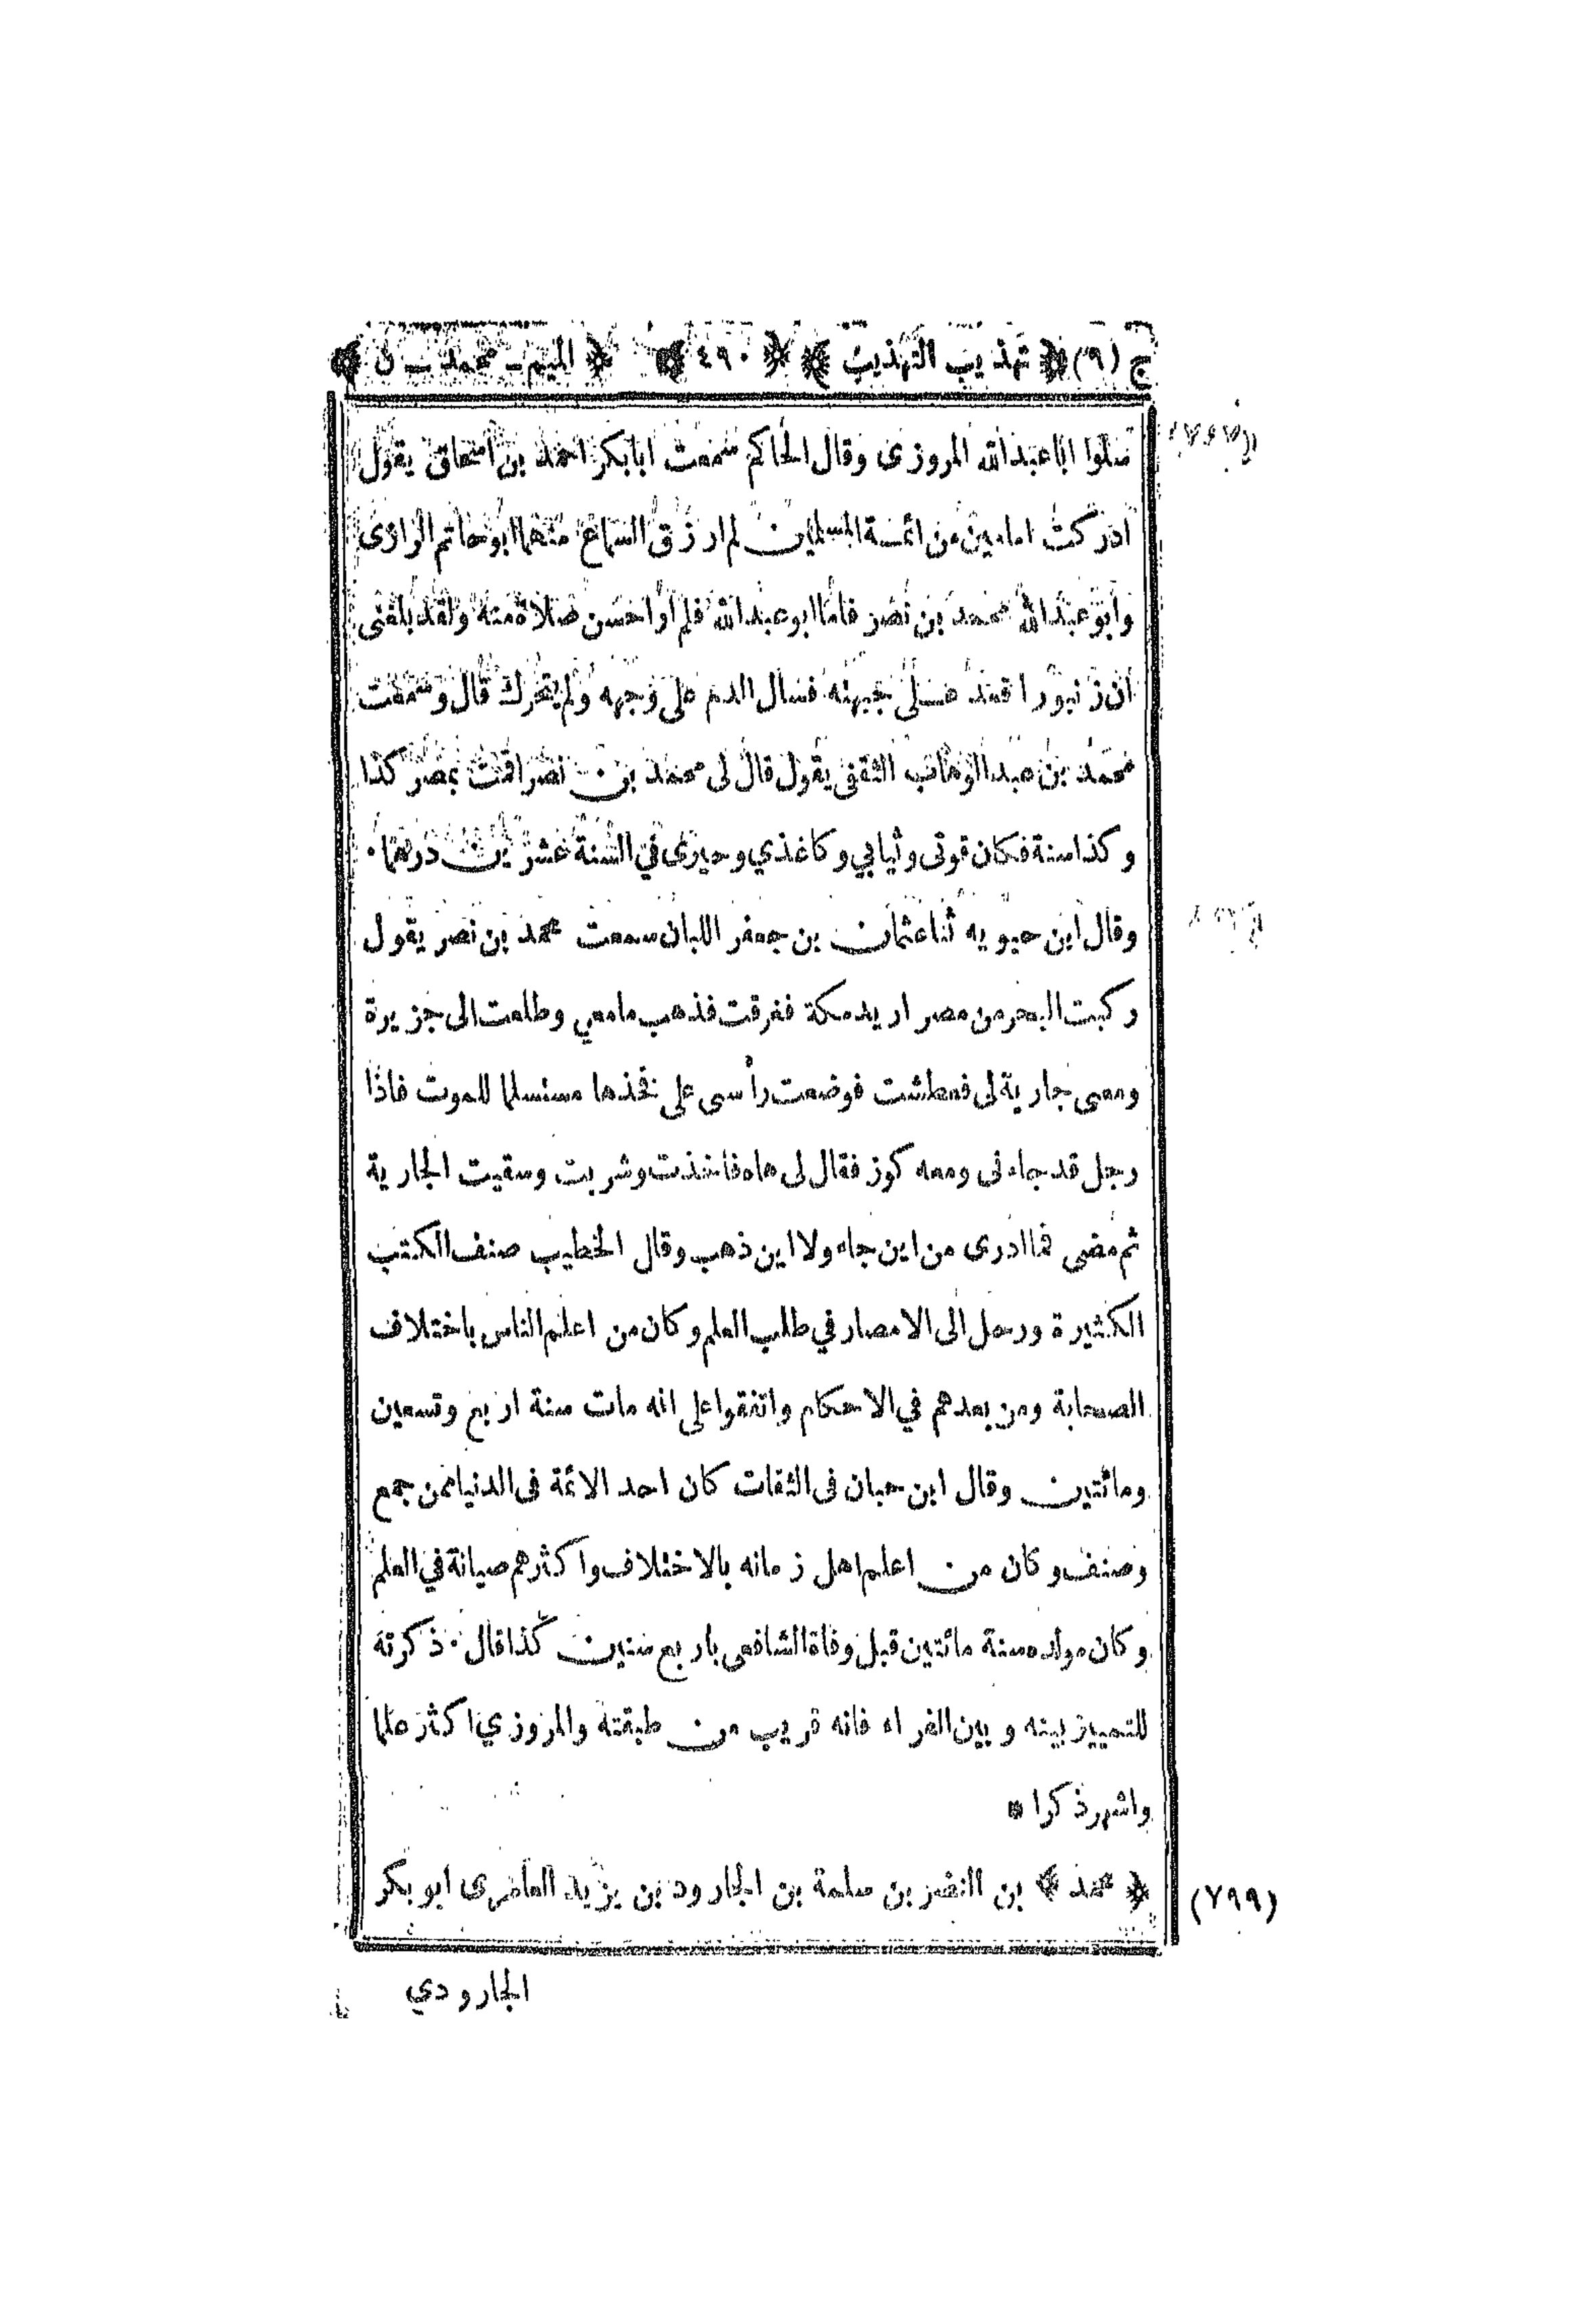 ج (٩) ﴿ تهذيب التهذيب ﴾ ﴿ ٤٩٠ ﴾ ﴿ الميم - محمد - ن ﴾
سلوا ابا عبد الله المروزى وقال الحاكم سمعت ابا بكر احمد بن اسحاق يقول
ادركت امامين من ائمة المسلمين لم ارزق السماع منهما ابو حاتم الرازى
وابو عبد الله محمد بن نصر فاما ابو عبد الله فلم ار احسن صلاة منه ولقد بلغنى
ان زنبورا قعد على جبهته فسال الدم على وجهه ولم يتحرك قال وسمعت
محمد بن عبد الوهاب الثقفى يقول قال لى محمد بن نصر اقمت بمصر كذا
وكذا سنة فكان قوتى وثيابي وكاغذي وحبرى في السنة عشرين درهما .
وقال ابن حيويه ثنا عثمان بن جعفر اللبان سمعت محمد بن نصر يقول
ركبت البحر من مصر اريد مكة فغرقت فذهب ما معي وطلعت الى جزيرة
ومعى جارية لى فعطشت فوضعت رأسى على فخذها مستسلما للموت فاذا
رجل قد جاءنى ومعه كوز فقال لى هاه فاخذت وشربت وسقيت الجارية
ثم مضى فما ادرى من اين جاء ولا اين ذهب وقال الخطيب صنف الكتب
الكثيرة ورحل الى الامصار في طلب العلم وكان من اعلم الناس باختلاف
الصحابة ومن بعدهم في الاحكام واتفقوا على انه مات سنة اربع وتسعين
ومائتين وقال ابن حبان فى الثقات كان احد الائمة فى الدنيا ممن جمع
وصنف وكان من اعلم اهل زمانه بالاختلاف واكثرهم صيانة في العلم
وكان مولده سنة مائتين قبل وفاة الشافعى باربع سنين كذا قال . ذكرته
للتمييز بينه وبين الفراء فانه قريب من طبقته والمروزي اكثر علما
واشهر ذكرا *
﴿ محمد ﴾ بن النضر بن سلمة بن الجارود بن يزيد العامرى ابو بكر
(٧٩٩)
الجارودي